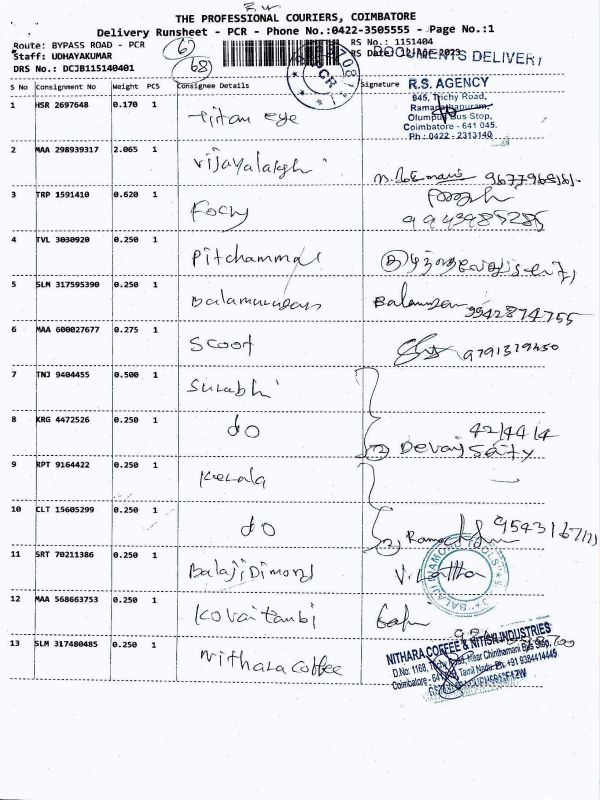 THE PROFESSIONAL COURIERS, COIMBATORE
Delivery Runsheet - PCR - Phone No.:0422-3505555 - Page No.:1
Route: BYPASS ROAD - PCR
RS No.: 1151404
Staff: UDHAYAKUMAR
RS Date: 12-Apr-2023
DOCUMENTS DELIVERY
DRS No.: DCJB115140401
62
68
S No Consignment No Weight PCS Consignee Details Signature
R.S. AGENCY
945, Trichy Road,
Ramanathapuram,
Olumpus Bus Stop,
Coimbatore - 641 045.
Ph : 0422 - 2313140
1 HSR 2697648 0.170 1 Titan eye
2 MAA 298939317 2.065 1
3 TRP 1591410 0.620 1
9943985285
4 TVL 3030920 0.250 1 Pitchammal
5 SLM 317595390 0.250 1 Balamurugan 9942874755
6 MAA 600027677 0.275 1 Scoot 9791379450
7 TNJ 9404455 0.500 1 Surabhi
8 KRG 4472526 0.250 1 do
9 RPT 9164422 0.250 1 Kerala
10 CLT 15605299 0.250 1 do
11 SRT 70211386 0.250 1 Balaji Dimond
BALAJI DIAMOND TOOLS
12 MAA 568663753 0.250 1 Kovai tambi
13 SLM 317480485 0.250 1 Nithara coffee
NITHARA COFFEE & NITISH INDUSTRIES
D.No: 1168, Trichy Road, Near Chinthamani Bus Stop,
Coimbatore - 641 Tamil Nadu. Ph: +91 9384414445